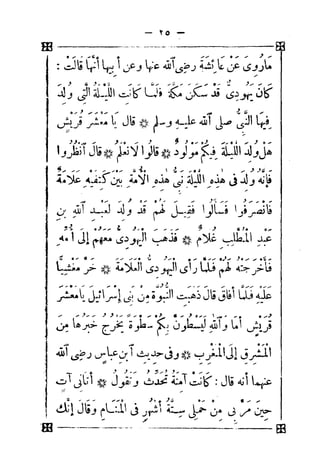 — ٢٥ —
مَارُوِىَ عَنْ عَائِشَةَ رضى اللّٰه عنها وعن أبيها أنَّها قَالَتْ :
كَانَ يَهُودِىٌّ قَدْ سَكَنَ مَكَّةَ فَلَمَّا كَانَتِ اللَّيْلَةُ الَّتِى وُلِدَ
فِيهَا النَّبِىُّ صلى اللّٰه عليه وسلم ❊ قال يَا مَعْشَرَ قُرَيْشٍ
هَلْ وُلِدَ اللَّيْلَةَ فِيكُمْ مَوْلُودٌ ❊ قالُوا لَانَعْلَمُ ❊ قَالَ اُنْظُرُوا
فَإِنَّهُ وُلِدَ فى هٰذِهِ اللَّيْلَةِ نَبِىُّ هٰذِهِ الأُمَّةِ بَيْنَ كَتِفَيْهِ عَلَامَةٌ
فَانْصَرَفُوا فَسَأَلُوا فَقِيلَ لَهُمْ قَدْ وُلِدَ لِعَبْدِ اللّٰهِ بْنِ
عَبْدِ الْمُطَّلِبِ غُلَامٌ ❊ فَذَهَبَ الْيَهُودِىُّ مَعَهُمْ إِلَى أُمِّهِ
فَأَخْرَجَتْهُ لَهُمْ فَلَمَّا رَأَى الْيَهُودِىُّ الْعَلَامَةَ ❊ خَرَّ مَغْشِيًّا
عَلَيْهِ فَلَمَّا أَفَاقَ قَالَ ذَهَبَتِ النُّبُوَّةُ مِنْ بَنِى إِسْرَائِيلَ يَامَعْشَرَ
قُرَيْشٍ أَمَا وَاللّٰهِ لَيَسْطُوَنَّ بِكُمْ سَطْوَةً يَخْرُجُ خَبَرُهَا مِنَ
الْمَشْرِقِ إِلَى الْمَغْرِبِ ❊ وفى حديث ابن عباس رضى اللّٰه
عنهما أنه قال : كَانَتْ آمِنَةُ تُحَدِّثُ وَتَقُولُ ❊ أَتَانِى آتٍ
حِينَ مَرَّ بِى مِنْ حَمْلِى سِتَّةُ أَشْهُرٍ فى الْمَنَامِ وَقَالَ إِنَّكِ